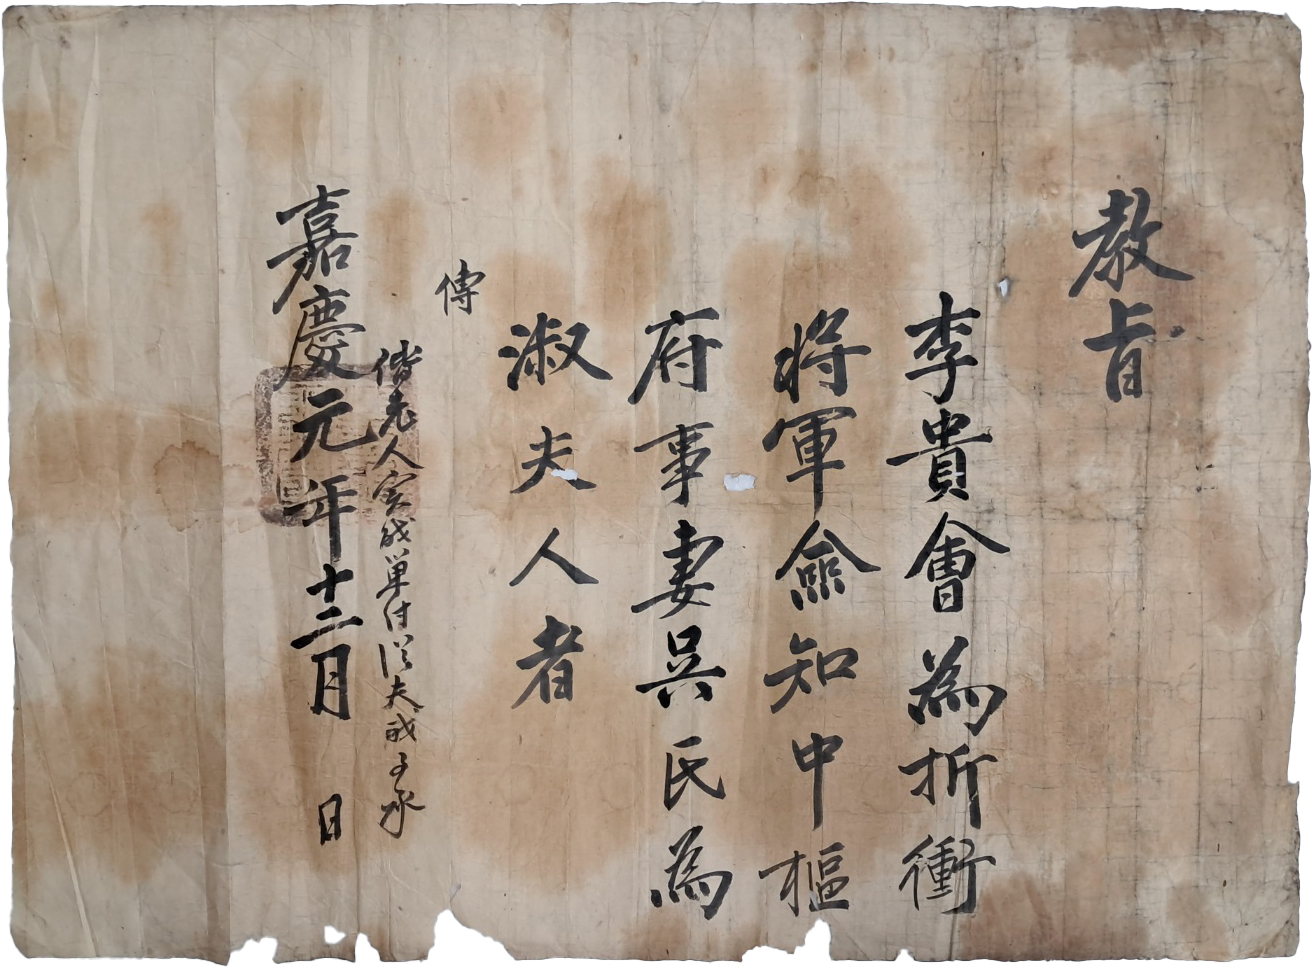 教旨
李貴會為折衝
將軍僉知中樞
府事妻吳氏為
淑夫人者
傳
老人実職單付從夫職子承
嘉慶元年十二月 日